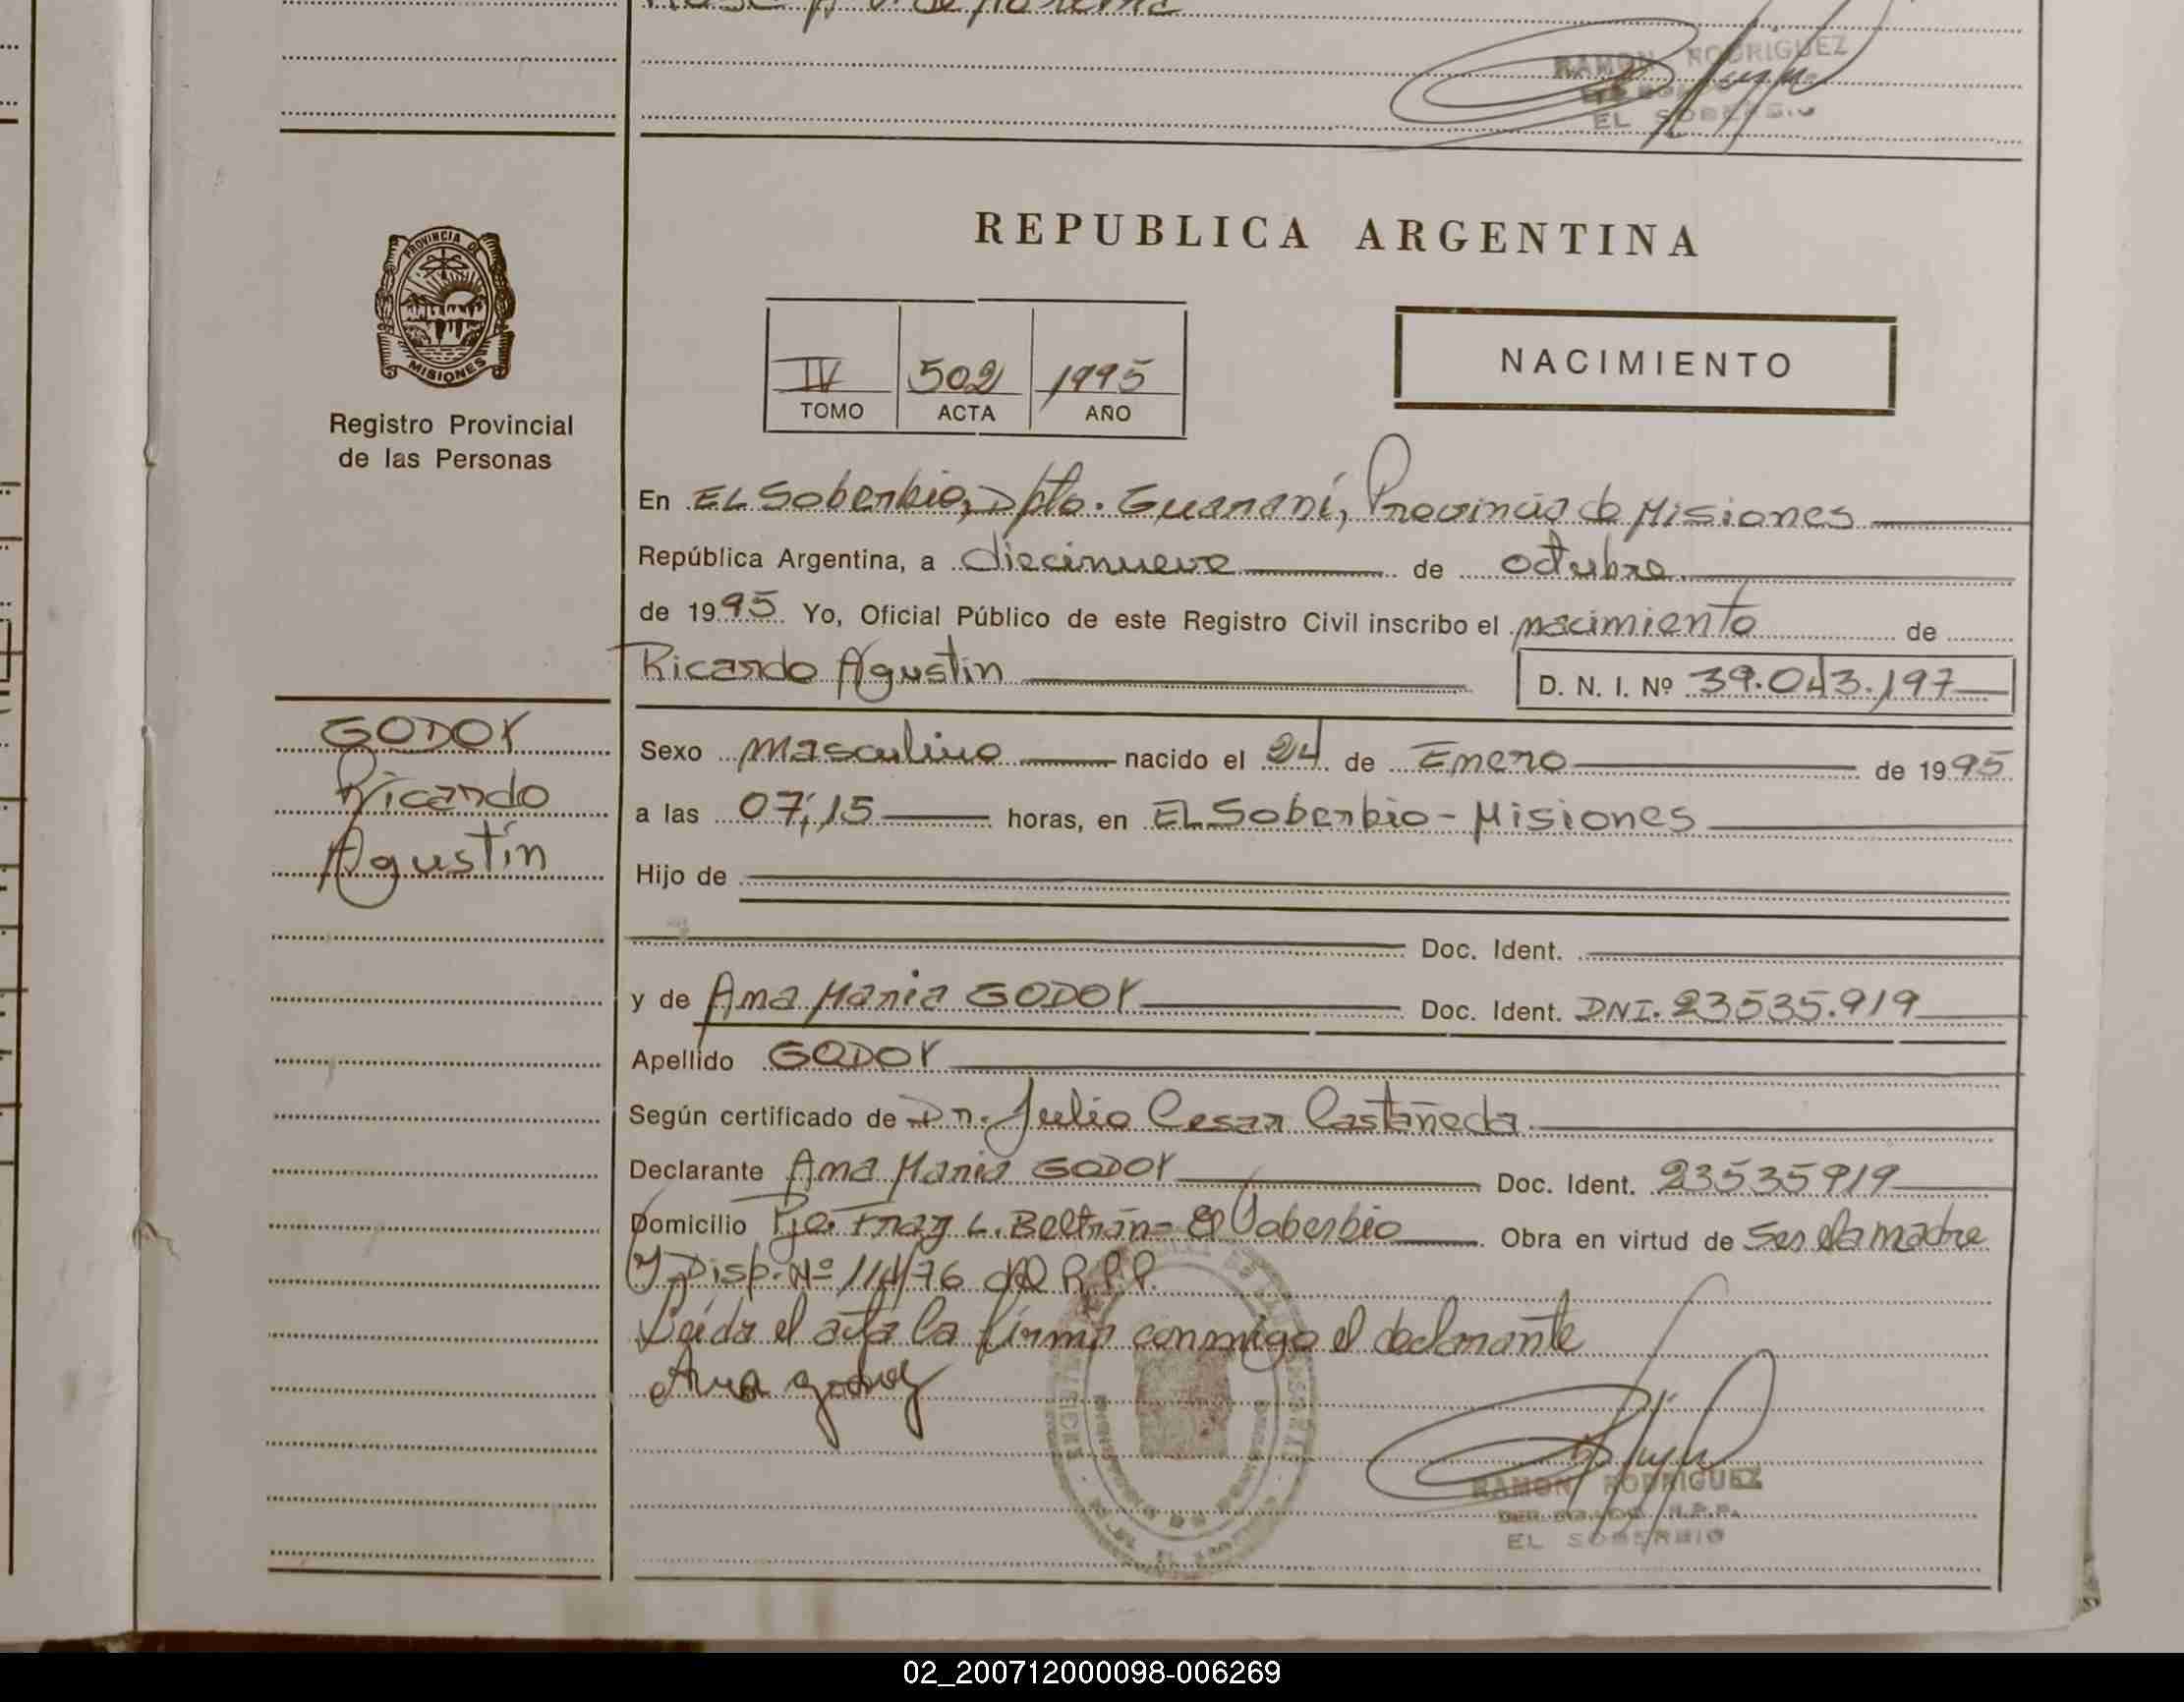 RAMON RODRIGUEZ
EL SOBERBIO
PROVINCIA DE
MISIONES
Registro Provincial
de las Personas
REPUBLICA ARGENTINA
IV 502 1995
TOMO ACTA AÑO
NACIMIENTO
En EL Soberbio, Dpto. Guaraní, Provincia de Misiones
República Argentina, a diecinueve de octubre
de 1995 Yo, Oficial Público de este Registro Civil inscribo el nacimiento de
Ricardo Agustin D. N. I. Nº 39.043.197
GODOY
Ricardo
Agustín
Sexo masculino nacido el 24 de Enero de 1995
a las 07;15 horas, en EL Soberbio - Misiones
Hijo de
Doc. Ident.
y de Ana Maria GODOY Doc. Ident. DNI. 23535.919
Apellido GODOY
Según certificado de Dr. Julio Cesar Castañeda
Declarante Ana Maria GODOY Doc. Ident. 23535919
Domicilio Pje. Fray L. Beltrán - El Soberbio Obra en virtud de Ser la madre
y Disp. Nº 114/76 del R.P.P.
Leída el acta la firma conmigo el declarante
Ana godoy
RAMON RODRIGUEZ
EL SOBERBIO
02_200712000098-006269